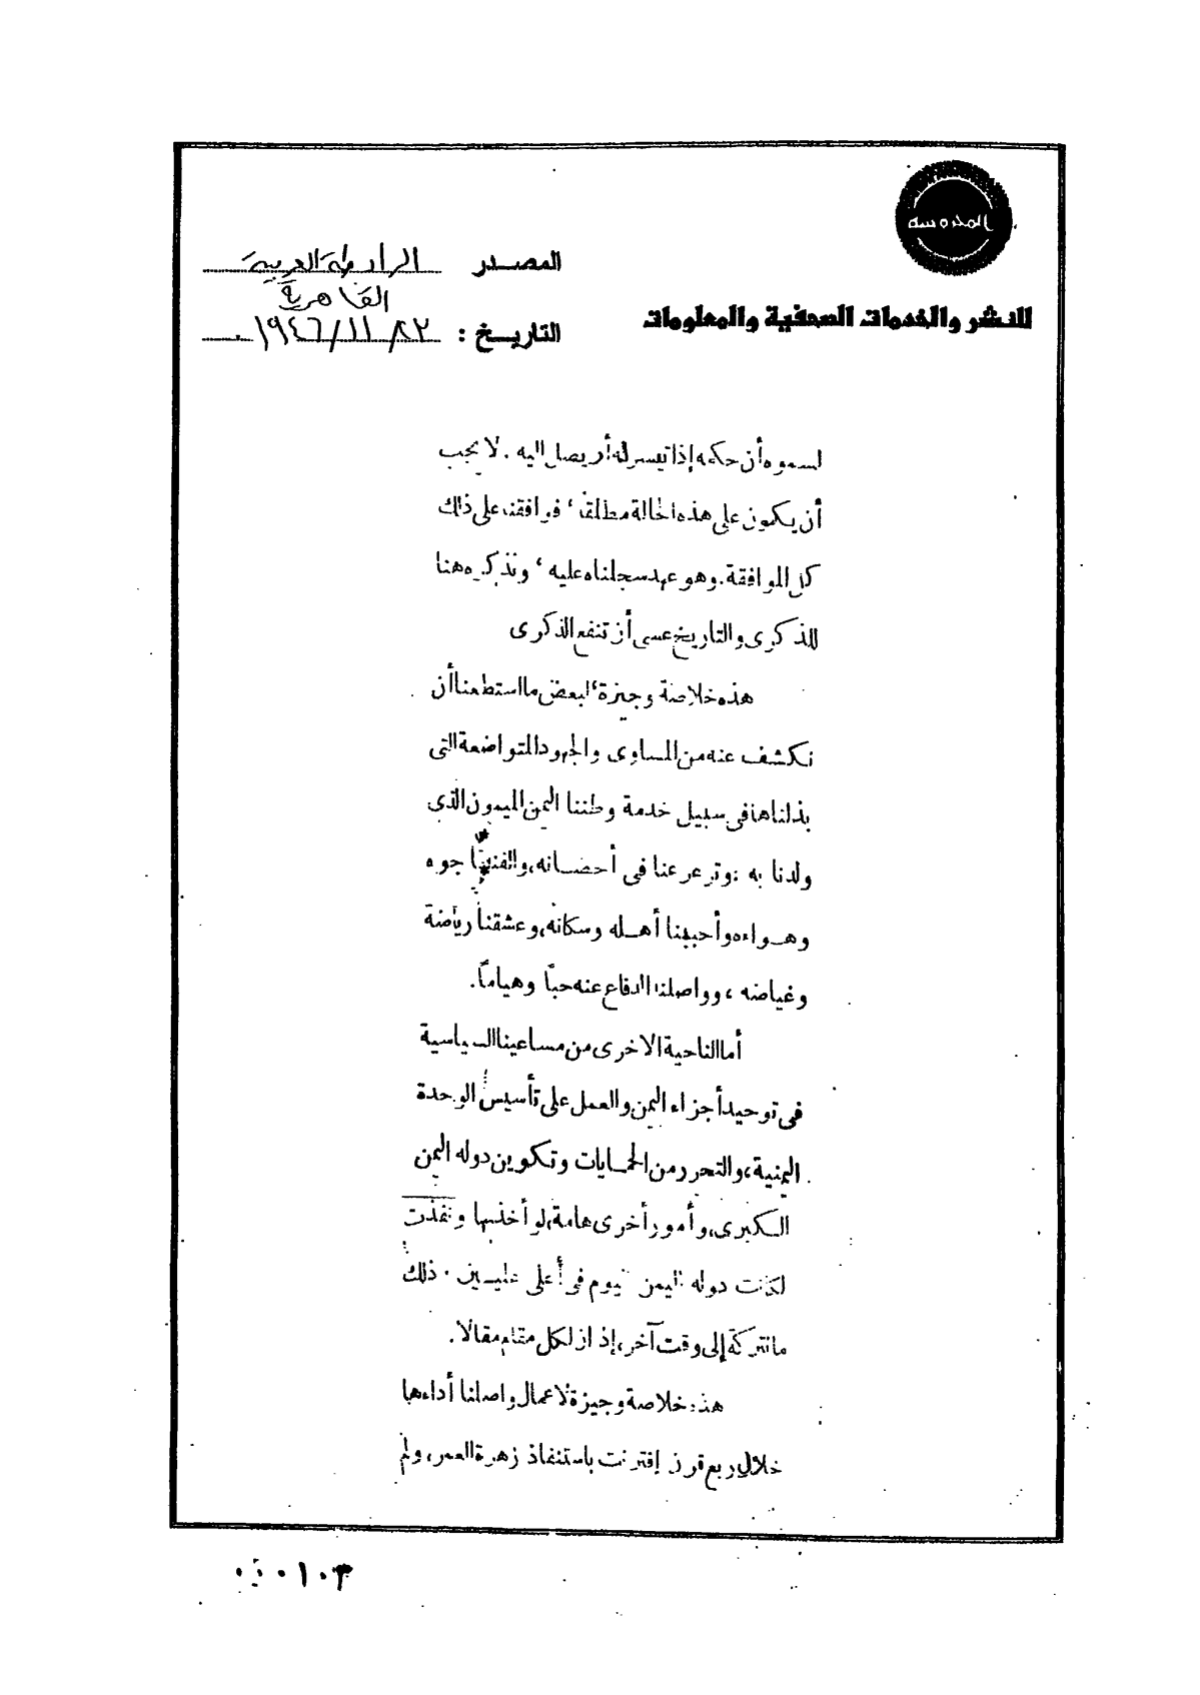 المحروسة
للنشر والخدمات الصحفية والمعلومات
المصدر الرابطة العربية
القاهرة
التاريخ : ٢٣/١١/١٩٤٦
لسموه أن حكمه إذا تيسر له أن يصل اليه . لا يجب
أن يكون على هذه الحالة مطلقا ، فوافقنا على ذلك
كل الموافقة . وهو عهد سجلناه عليه ، ونذكره هنا
للذكرى والتاريخ عسى أن تنفع الذكرى
هذه خلاصة وجيزة لبعض ما استطعنا أن
نكشف عنه من المساوى والجهود المتواضعة التى
بذلناها فى سبيل خدمة وطننا اليمن الميمون الذى
ولدنا به وترعرعنا فى أحضانه، والفنا جوه
وهواءه وأحببنا أهله وسكانه، وعشقنا رياضة
وغياضه ، وواصلنا الدفاع عنه حبًا وهيامًا.
أما الناحية الاخرى من مساعينا السياسية
فى توحيد أجزاء اليمن والعمل على تأسيس الوحدة
اليمنية، والتحرر من الحمايات وتكوين دوله اليمن
الكبرى، وأمور أخرى هامة، لو أخذ بها ونفذت
لكانت دوله اليمن اليوم فى أعلى عليين . ذلك
ما نتركة إلى وقت آخر، إذ ان لكل مقام مقالا.
هذه خلاصة وجيزة لأعمال واصلنا أداءها
خلال ربع قرن إقترنت باستنفاذ زهرة العمر، ولم